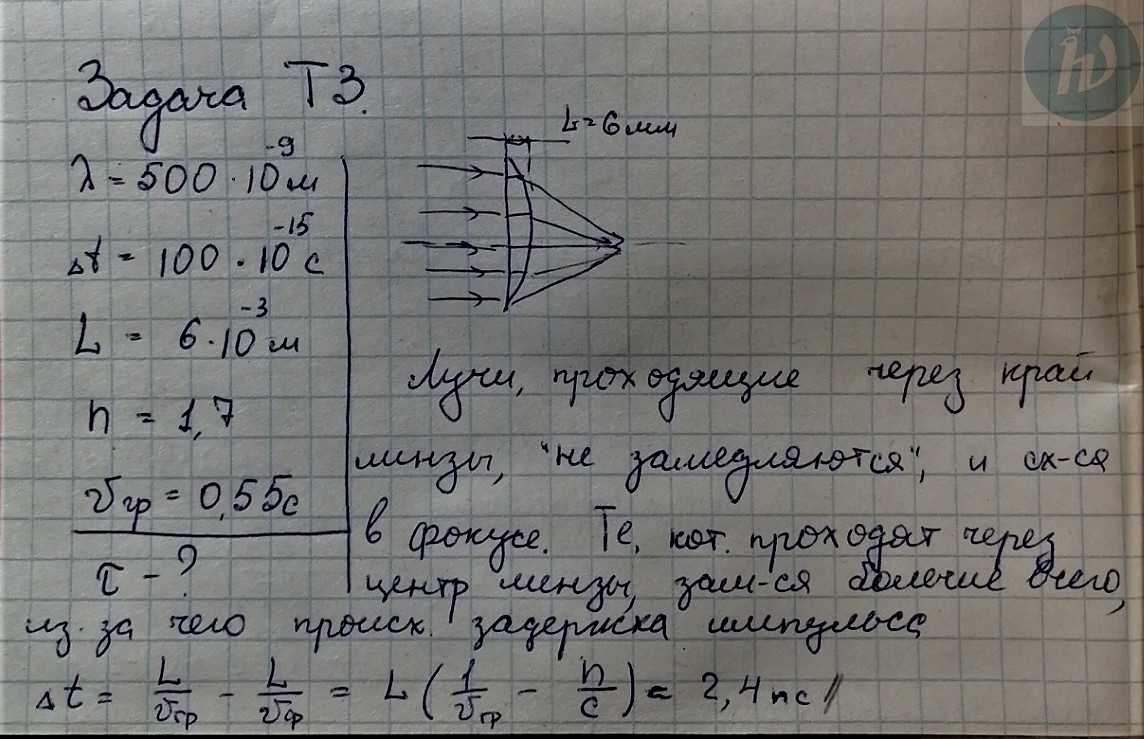 Задача Т3.
L=6мм
λ = 500 · 10⁻⁹ м
Δt = 100 · 10⁻¹⁵ с
L = 6 · 10⁻³ м
n = 1,7
vгр = 0,55с
τ - ?
Лучи, проходящие через край
линзы, "не замедляются", и сх-ся
в фокусе. Те, кот. проходят через
центр линзы, зам-ся более всего,
из-за чего происх. задержка импульса
Δt = L/vгр - L/vф = L (1/vгр - n/c) = 2,4 пс //